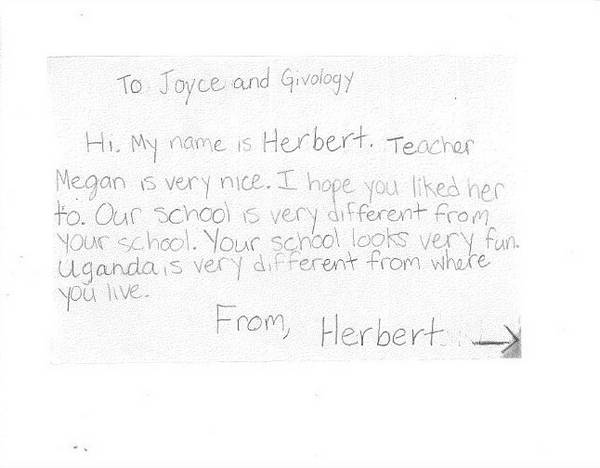 To Joyce and Givology
Hi. My name is Herbert. Teacher
Megan is very nice. I hope you liked her
to. Our school is very different from
your school. Your school looks very fun.
Uganda is very different from where
you live.
From, Herbert